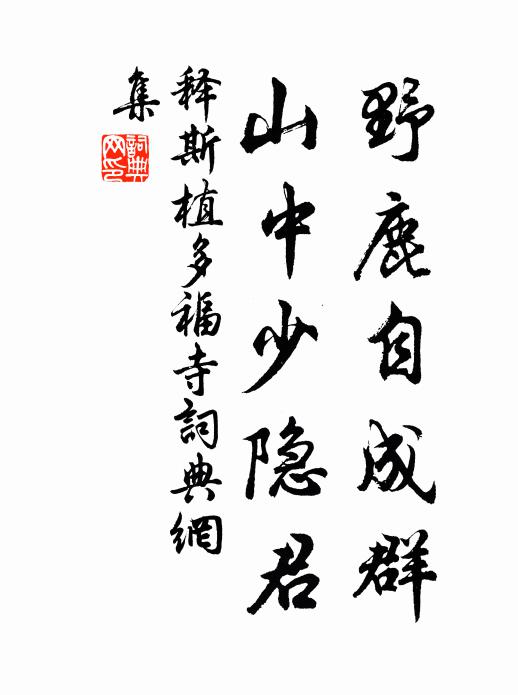 野鹿自成群
山中少隐君
释斯植多福寺詞典網
集
詞典网印